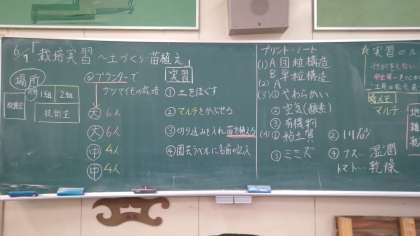 6/9 栽培実習 ～土づくり・苗植え
場所
1組 2組
技術室
◎プランターで
大 6人
大 6人
中 4人
中 4人
実習
① 土をほぐす
② マルチをかぶせる
③ 切り込みを入れ 苗を植える
④ 園芸ラベルに名前の記入
プリント・ノート
(1) A 団粒構造
B 単粒構造
(2) A
(3) ① やわらかい
② 空気(酸素)
③ 有機物
(4) ① 粘土質
③ ミミズ
④ ナス… 湿潤
トマト… 乾燥
実習
マルチ